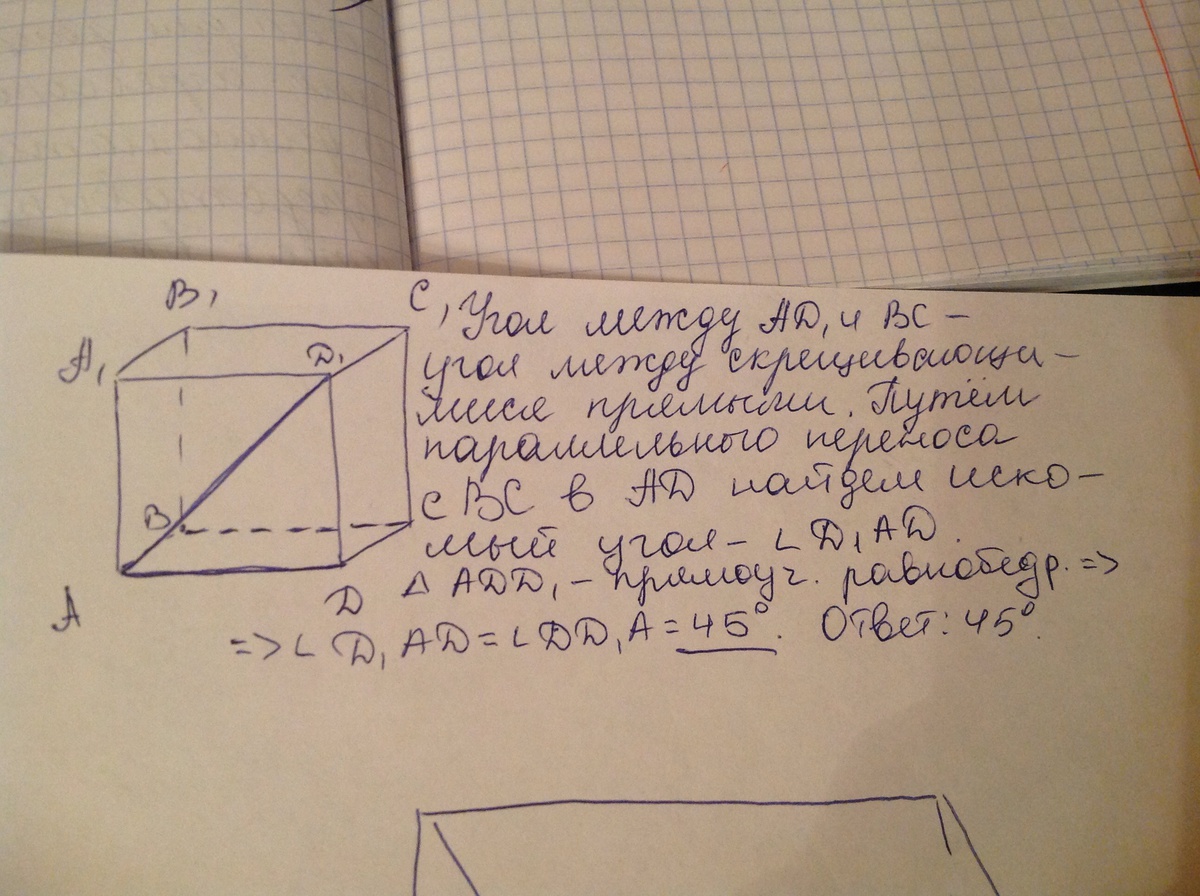 B₁
C₁
A₁
D₁
B
C
A
D
Угол между AD₁ и BC –
угол между скрещивающи-
мися прямыми. Путём
параллельного переноса
BC в AD найдем иско-
мый угол – ∠ D₁AD.
Δ ADD₁ – прямоуг. равнобедр. =>
=> ∠ D₁AD = ∠DD₁A = 45°. Ответ: 45°.